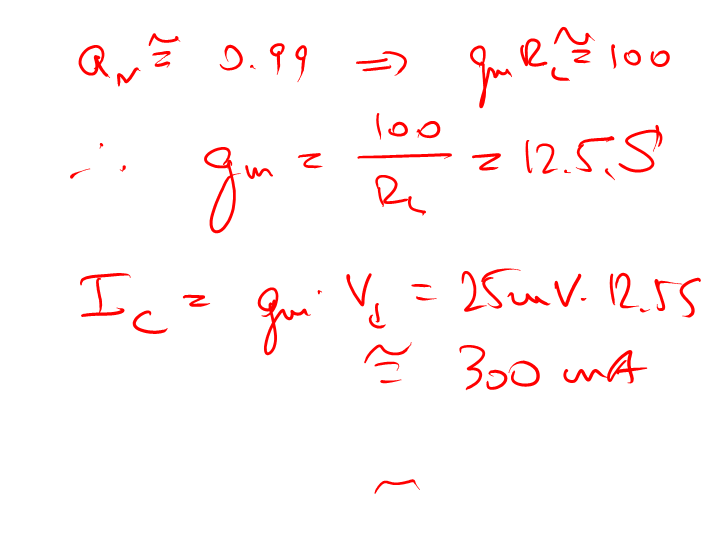 a_v ≅ 0.99 ⇒ g_m R_L ≅ 100
∴ g_m = 100 / R_L = 12.5 S
I_C = g_m · V_t = 25mV · 12.5S
≅ 300 mA
~